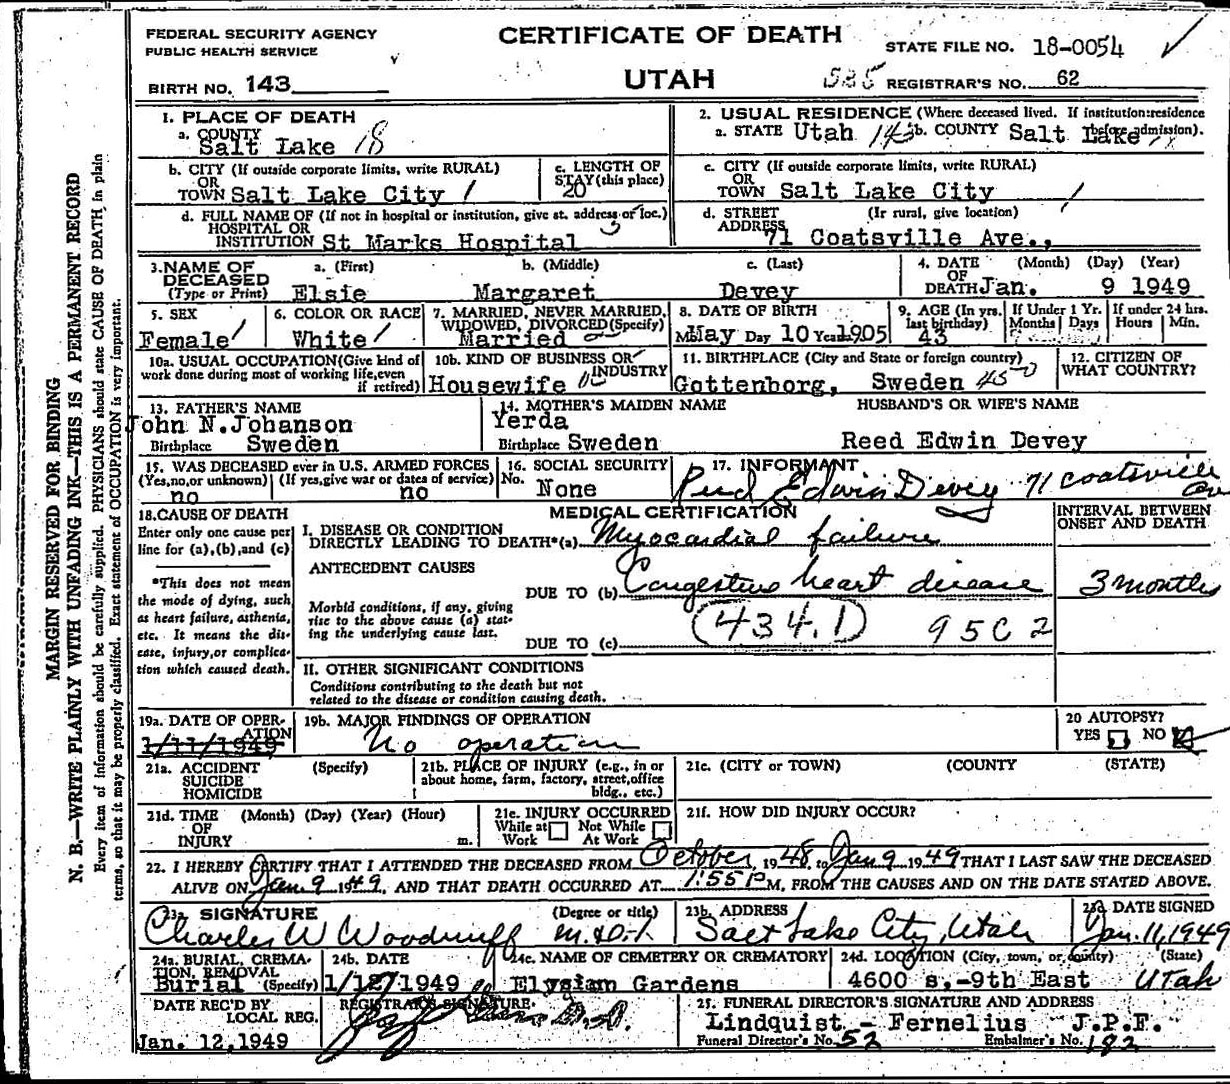 FEDERAL SECURITY AGENCY
PUBLIC HEALTH SERVICE
CERTIFICATE OF DEATH
STATE FILE NO. 18-0054
BIRTH NO. 143
UTAH
REGISTRAR'S NO. 62
MARGIN RESERVED FOR BINDING
N. B.—WRITE PLAINLY WITH UNFADING INK—THIS IS A PERMANENT RECORD
Every item of information should be carefully supplied. PHYSICIANS should state CAUSE OF DEATH in plain
terms, so that it may be properly classified. Exact statement of OCCUPATION is very important.
1. PLACE OF DEATH
a. COUNTY
Salt Lake 18
2. USUAL RESIDENCE (Where deceased lived. If institution:residence
before admission).
a. STATE Utah 143 b. COUNTY Salt Lake
b. CITY (If outside corporate limits, write RURAL)
OR
TOWN Salt Lake City 1
c. LENGTH OF
STAY (this place)
20
c. CITY (If outside corporate limits, write RURAL)
OR
TOWN Salt Lake City 1
d. FULL NAME OF (If not in hospital or institution, give st. address or loc.)
HOSPITAL OR
INSTITUTION St Marks Hospital
d. STREET (Ir rural, give location)
ADDRESS
71 Coatsville Ave.,
3. NAME OF
DECEASED
(Type or Print)
a. (First) b. (Middle) c. (Last)
Elsie Margaret Devey
4. DATE (Month) (Day) (Year)
OF
DEATH Jan. 9 1949
5. SEX
Female 1
6. COLOR OR RACE
White 1
7. MARRIED, NEVER MARRIED,
WIDOWED, DIVORCED (Specify)
Married
8. DATE OF BIRTH
Mo May Day 10 Year 1905
9. AGE (In yrs.
last birthday)
43
If Under 1 Yr.
Months Days
If under 24 hrs.
Hours Min.
10a. USUAL OCCUPATION (Give kind of
work done during most of working life, even
if retired)
10b. KIND OF BUSINESS OR
INDUSTRY
Housewife
11. BIRTHPLACE (City and State or foreign country)
Gottenborg, Sweden 450
12. CITIZEN OF
WHAT COUNTRY?
13. FATHER'S NAME
John N. Johanson
Birthplace Sweden
14. MOTHER'S MAIDEN NAME
Yerda
Birthplace Sweden
HUSBAND'S OR WIFE'S NAME
Reed Edwin Devey
15. WAS DECEASED ever in U.S. ARMED FORCES
(Yes, no, or unknown) (If yes, give war or dates of service)
no no
16. SOCIAL SECURITY
No. None
17. INFORMANT
Reed Edwin Devey 71 Coatsville Ave
18. CAUSE OF DEATH
Enter only one cause per
line for (a), (b), and (c)
*This does not mean
the mode of dying, such
as heart failure, asthenia,
etc. It means the dis-
ease, injury, or complica-
tion which caused death.
MEDICAL CERTIFICATION
I. DISEASE OR CONDITION
DIRECTLY LEADING TO DEATH*(a) Myocardial failure
ANTECEDENT CAUSES
DUE TO (b) Congestive heart disease
Morbid conditions, if any, giving
rise to the above cause (a) stat-
ing the underlying cause last.
434.1 95C2
DUE TO (c)
II. OTHER SIGNIFICANT CONDITIONS
Conditions contributing to the death but not
related to the disease or condition causing death.
INTERVAL BETWEEN
ONSET AND DEATH
3 months
19a. DATE OF OPER-
ATION
1/11/1949
19b. MAJOR FINDINGS OF OPERATION
No operation
20 AUTOPSY?
YES NO
21a. ACCIDENT (Specify)
SUICIDE
HOMICIDE
21b. PLACE OF INJURY (e.g., in or
about home, farm, factory, street, office
bldg., etc.)
21c. (CITY or TOWN) (COUNTY) (STATE)
21d. TIME (Month) (Day) (Year) (Hour)
OF
INJURY m.
21e. INJURY OCCURRED
While at Not While
Work At Work
21f. HOW DID INJURY OCCUR?
22. I HEREBY CERTIFY THAT I ATTENDED THE DECEASED FROM October, 1948, to Jan 9 1949 THAT I LAST SAW THE DECEASED
ALIVE ON Jan. 9 1949, AND THAT DEATH OCCURRED AT 1:55 P M, FROM THE CAUSES AND ON THE DATE STATED ABOVE.
23a. SIGNATURE (Degree or title)
Charles W Woodruff
23b. ADDRESS
Salt Lake City, Utah
23c. DATE SIGNED
Jan. 11, 1949
24a. BURIAL, CREMA-
TION, REMOVAL
Burial (Specify)
24b. DATE
1/12/1949
24c. NAME OF CEMETERY OR CREMATORY
Elysian Gardens
24d. LOCATION (City, town, or county) (State)
4600 s.-9th East Utah
DATE REC'D BY
LOCAL REG.
Jan. 12, 1949
REGISTRAR'S SIGNATURE
25. FUNERAL DIRECTOR'S SIGNATURE AND ADDRESS
Lindquist - Fernelius J.P.F.
Funeral Director's No. 52 Embalmer's No. 182